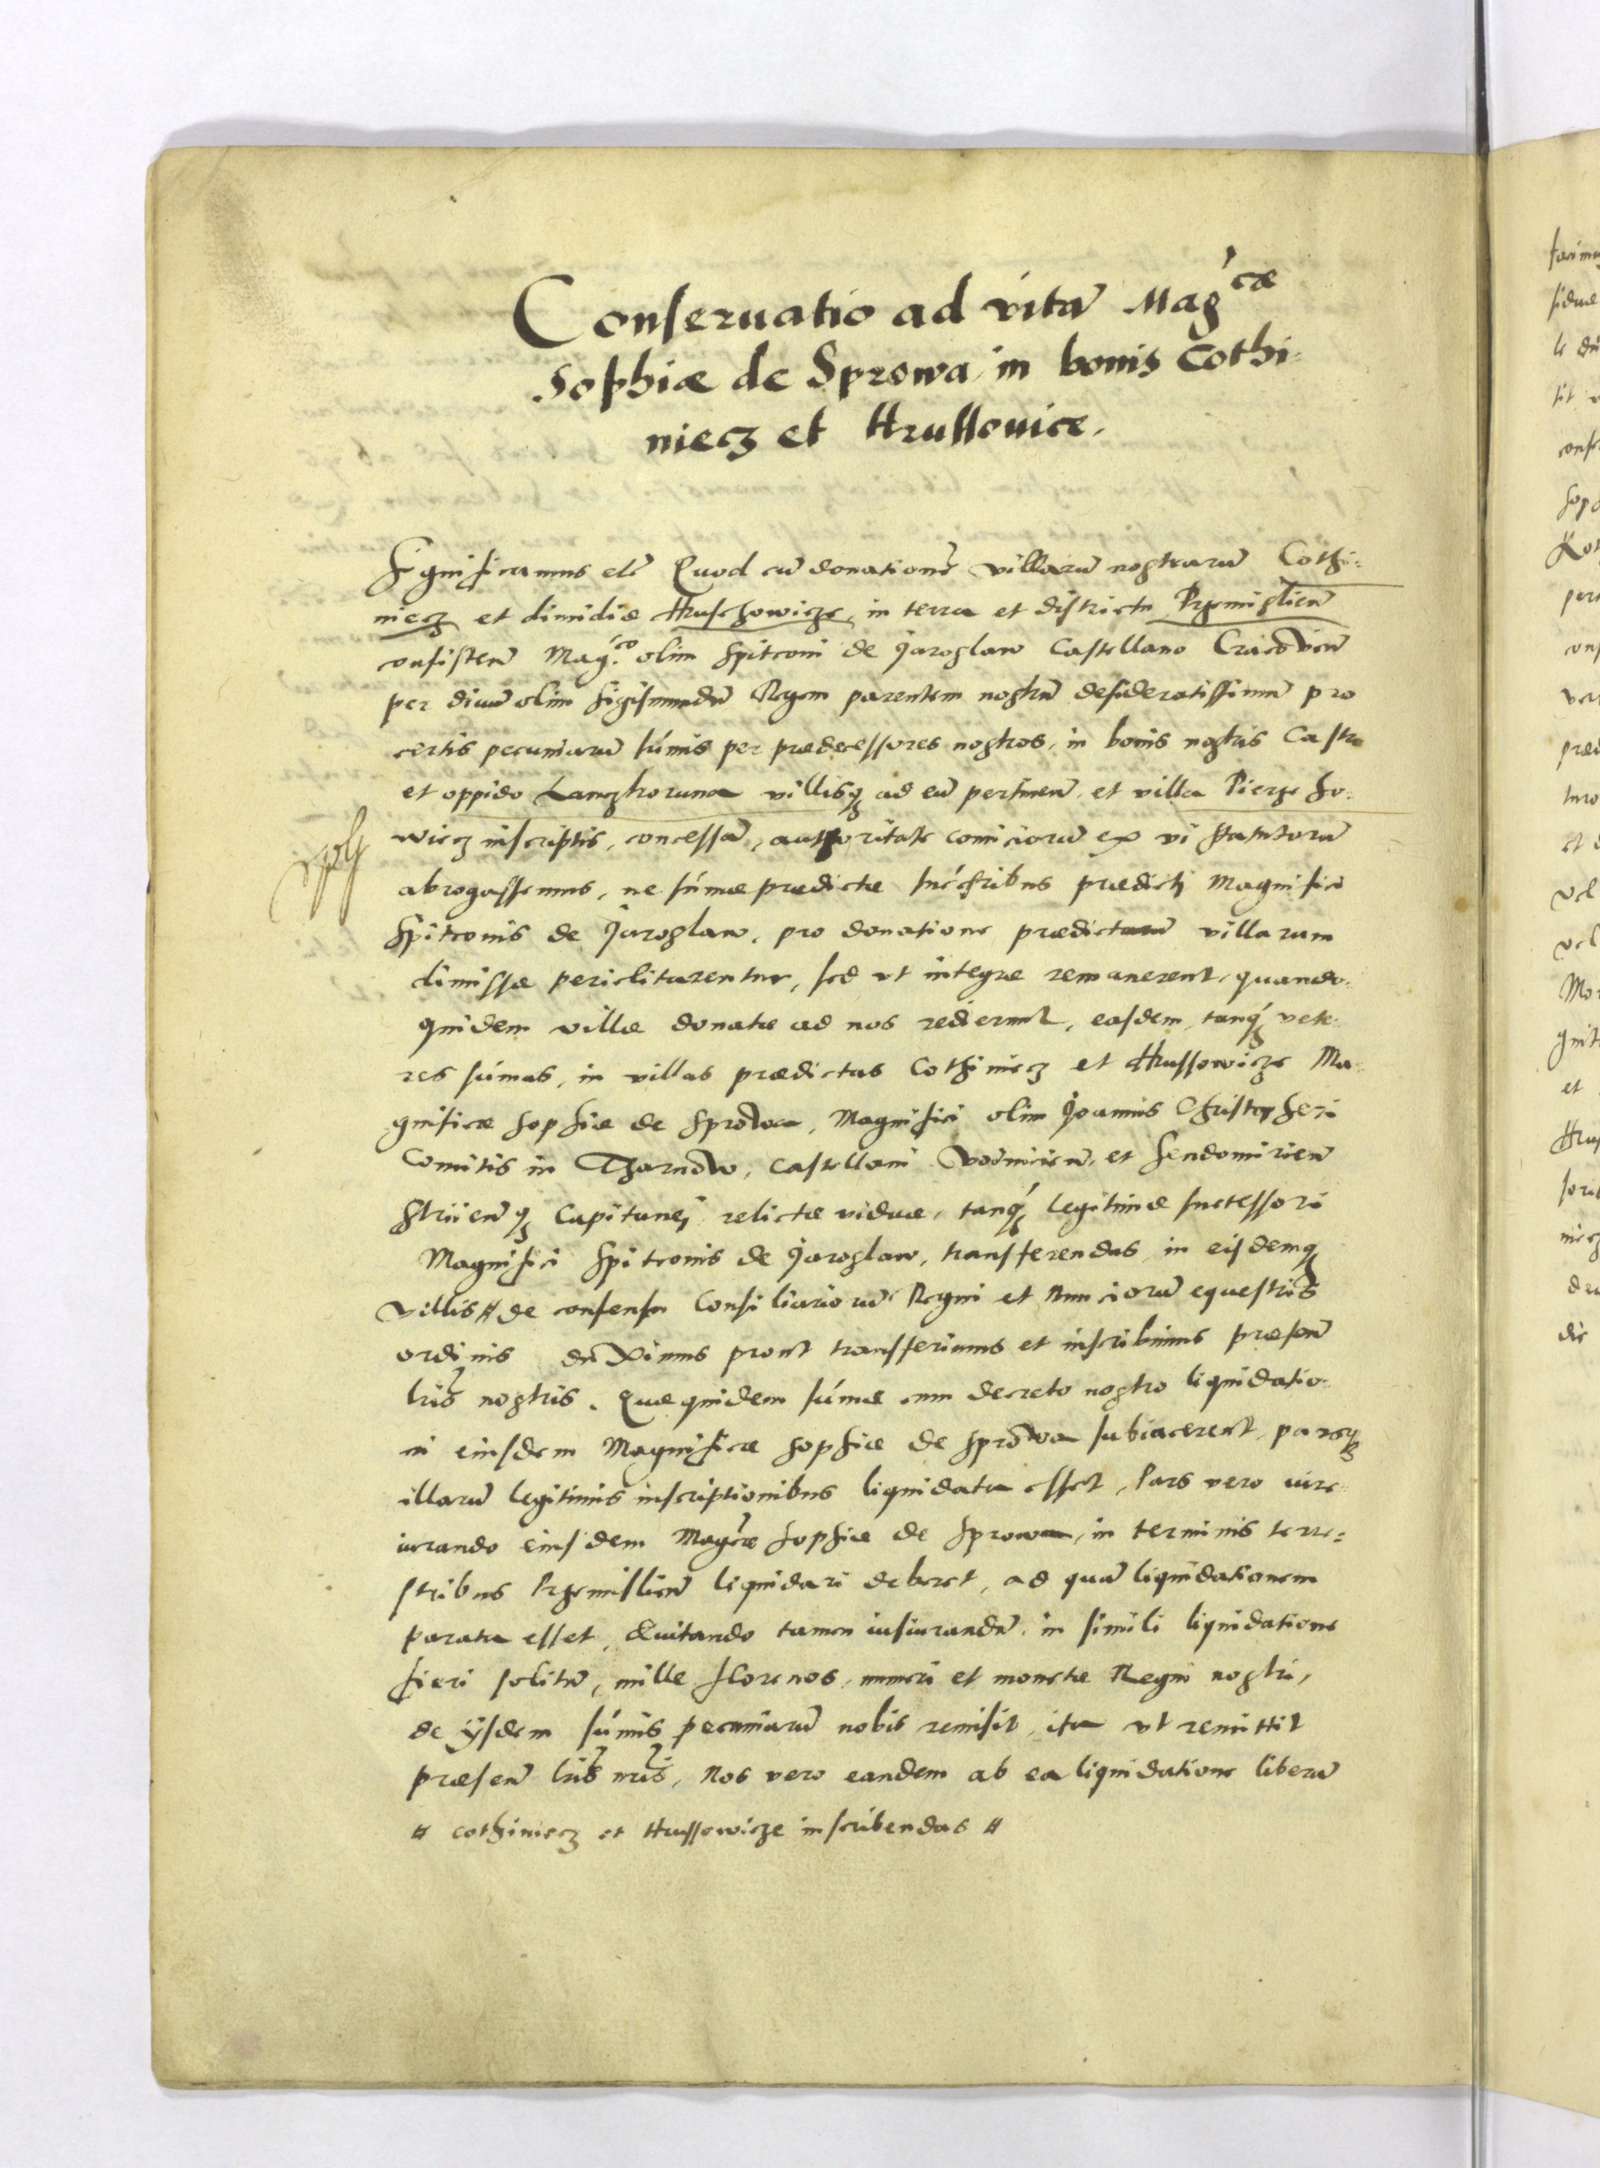 Conseruatio ad vitā Mag^cæ
Sophiæ de Sprowa in bonis Cothi-
niecz et Hrussouice.
Significamus etc̄ Quod cū donationē villarū nostrarū Cothi-
niecz et dimidiæ Hruschowicze, in terra et districtu Przemislien̄
consisten̄ Mag.^co olim Spitconi de Jaroslaw Castellano Cracovien̄
per diuū olim Sigismundū Regem parentem nostrū desideratissimū pro
certis pecuniarū sum̄is per prædecessores nostros, in bonis nostris Castro
et oppido Lanczkoruna villisq3 ad eū pertinen̄ et villa Pierzcho-
wiecz inscriptis, concessā, authoritate comiciorū ex vi statutorū
abrogassemus, ne sum̄æ prædictæ successoribus prædicti Magnifici
Spitconis de Jaroslaw, pro donatione prædictarū villarum
dimissæ periclitarentur, sed vt integræ remanerent, quando-
quidem villæ donatæ ad nos redierunt, easdem tanq̄3 vete-
res sum̄as, in villas prædictas Cothiniecz et Hrussowicze Ma-
gnificæ Sophiæ de Sprowa, Magnifici olim Joannis Christopheri
Comitis in Tharnow, Castellani Voinicien̄, et Sendomirien̄
Striien̄q3 Capitanej relictæ viduæ, tanq̄3 legitimæ successori
Magnifici Spitconis de Jaroslaw, transferendas in eisdemq3
villis # de consensu Consiliariorū Regni et Nunciorū equestris
ordinis duximus prout transferimus et inscribimus præsen̄
lrīs nostris. Quæ quidem sum̄æ cum decreto nostro liquidatio-
ni eiusdem Magnificæ Sophiæ de Sprowa subiacerent, parsq3
illarū legitimis inscriptionibus liquidata esset, Pars vero iure-
iurando eiusdem Mag^cæ Sophiæ de Sprowa, in terminis terre-
stribus Przemislien̄ liquidari deberet, ad quā liquidationem
parata esset, Euitando tamen iusiurandū, in simili liquidatione
fieri solitū, mille florenos, numeri et monetæ Regni nostri,
de ijsdem sum̄is pecuniarū nobis remisit, ita vt remittit
præsen̄ lrīs nrīs, Nos vero eandem ab ea liquidatione liberā
# Cothiniecz et Hrussowicze inscribendas #